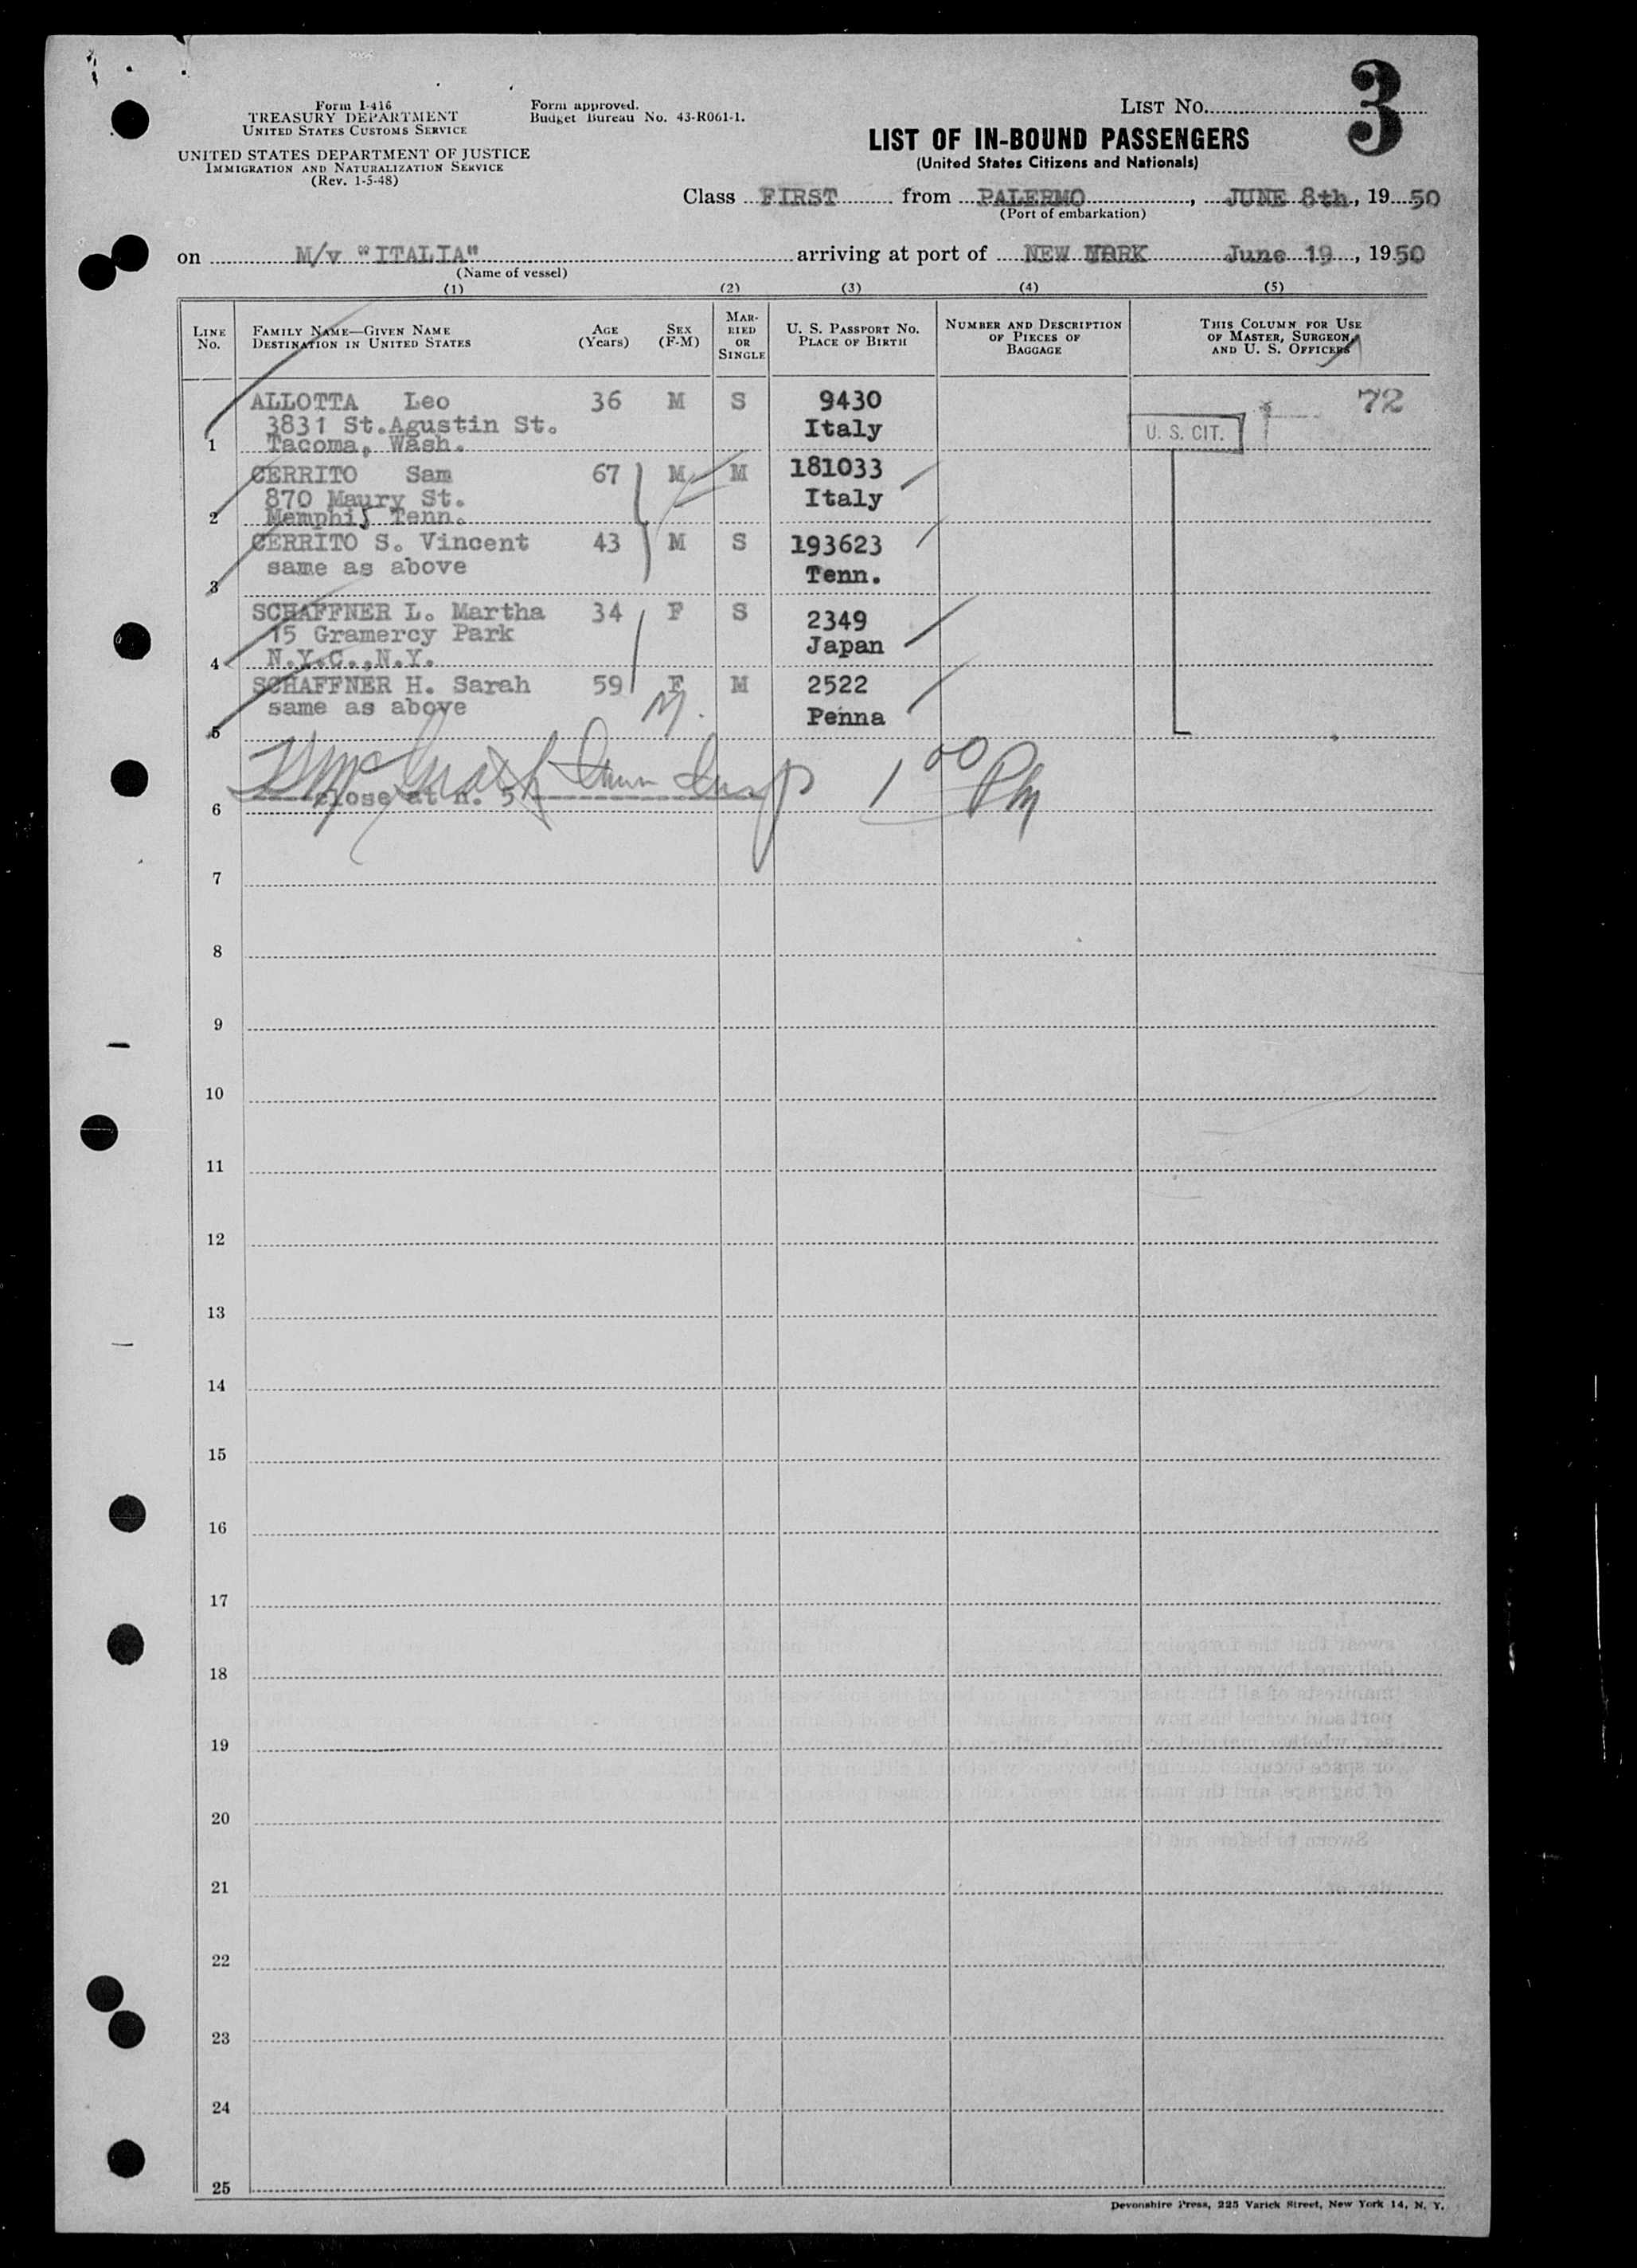 3
Form I-416
TREASURY DEPARTMENT
UNITED STATES CUSTOMS SERVICE
UNITED STATES DEPARTMENT OF JUSTICE
IMMIGRATION AND NATURALIZATION SERVICE
(Rev. 1-5-48)
Form approved.
Budget Bureau No. 43-R061-1.
LIST NO.
LIST OF IN-BOUND PASSENGERS
(United States Citizens and Nationals)
Class FIRST from PALERMO, JUNE 8th, 1950
(Port of embarkation)
on M/v "ITALIA" arriving at port of NEW YORK June 19, 1950
(Name of vessel)
(1) (2) (3) (4) (5)
LINE No.
FAMILY NAME—GIVEN NAME
DESTINATION IN UNITED STATES
AGE (Years)
SEX (F-M)
MARRIED OR SINGLE
U. S. PASSPORT NO.
PLACE OF BIRTH
NUMBER AND DESCRIPTION OF PIECES OF BAGGAGE
THIS COLUMN FOR USE OF MASTER, SURGEON, AND U. S. OFFICERS
ALLOTTA Leo 36 M S 9430 72
3831 St.Agustin St. Italy U. S. CIT.
1 Tacoma, Wash.
CERRITO Sam 67 M M 181033
870 Maury St. Italy
2 Memphis Tenn.
CERRITO S. Vincent 43 M S 193623
same as above Tenn.
3
SCHAFFNER L. Martha 34 F S 2349
15 Gramercy Park Japan
4 N.Y.C.,N.Y.
SCHAFFNER H. Sarah 59 F M 2522
same as above M. Penna
5
1 00
6 close at n. 5
7
8
9
10
11
12
13
14
15
16
17
18
19
20
21
22
23
24
25
Devonshire Press, 225 Varick Street, New York 14, N. Y.